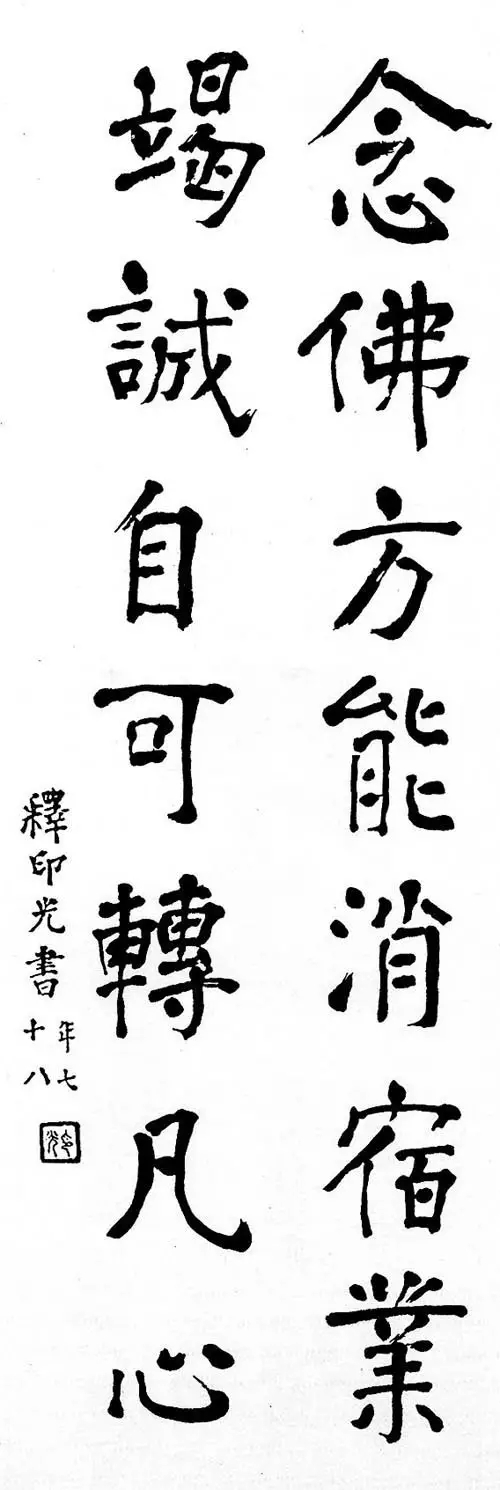 念佛方能消宿業
竭誠自可轉凡心
釋印光書
年七
十八
印光